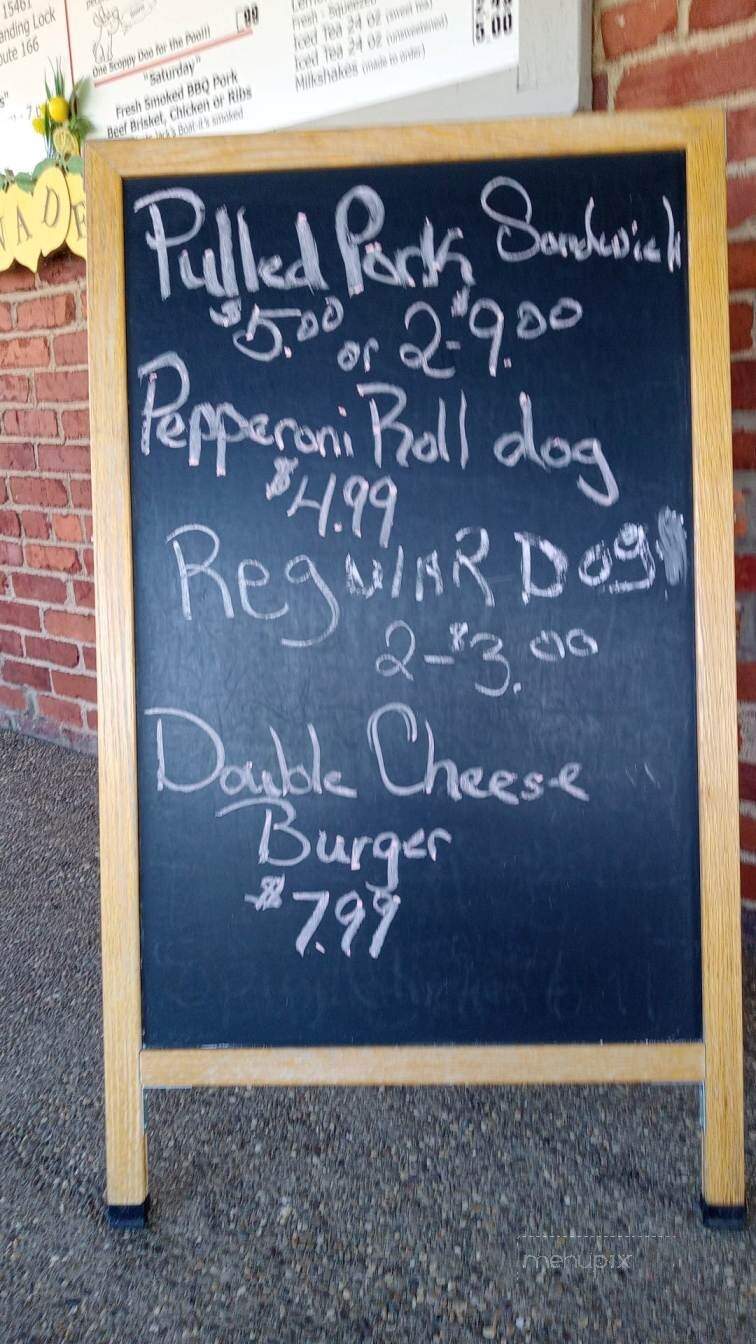 15461
anding Lock
oute 166
One Scoopy Doo for the Pool!)
.99
"Saturday"
Fresh Smoked BBQ Pork
Beef Brisket, Chicken or Ribs
Fresh - Squeezed
Iced Tea 24 oz (sweet tea)
Iced Tea 24 oz (unsweetened)
Milkshakes (made in order)
5.00
NADE
Pulled Pork Sandwich
$5.00 or 2-$9.00
Pepperoni Roll dog
$4.99
REgULAR Dog
2-$3.00
Double Cheese
Burger
$7.99
menupix